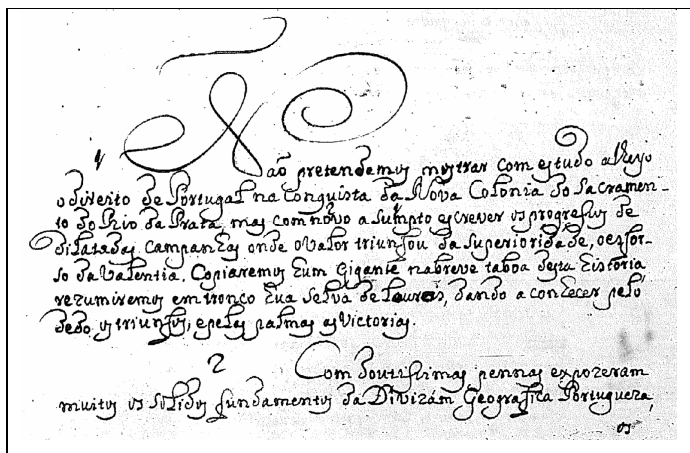 1 Não pretendemos mostrar com estudo alheyo
o direito de Portugal na Conquista da Nova Colonia do Sacramen-
to do Rio da Prata, mas com novo asumpto escrever os progressos de
dilatadas Campanhas onde o valor triunfou da superioridade, o esfor-
so da valentia. Copiaremos hum Gigante na breve taboa desta historia
rezumiremos em tronco hua selva de Louros, dando a conhecer pelo
dedo os triunfos, e pelas palmas as Victorias.
2 Com doutissimas pennas expozeram
muitos os solidos fundamentos da Divizám Geografica Portugueza,
os